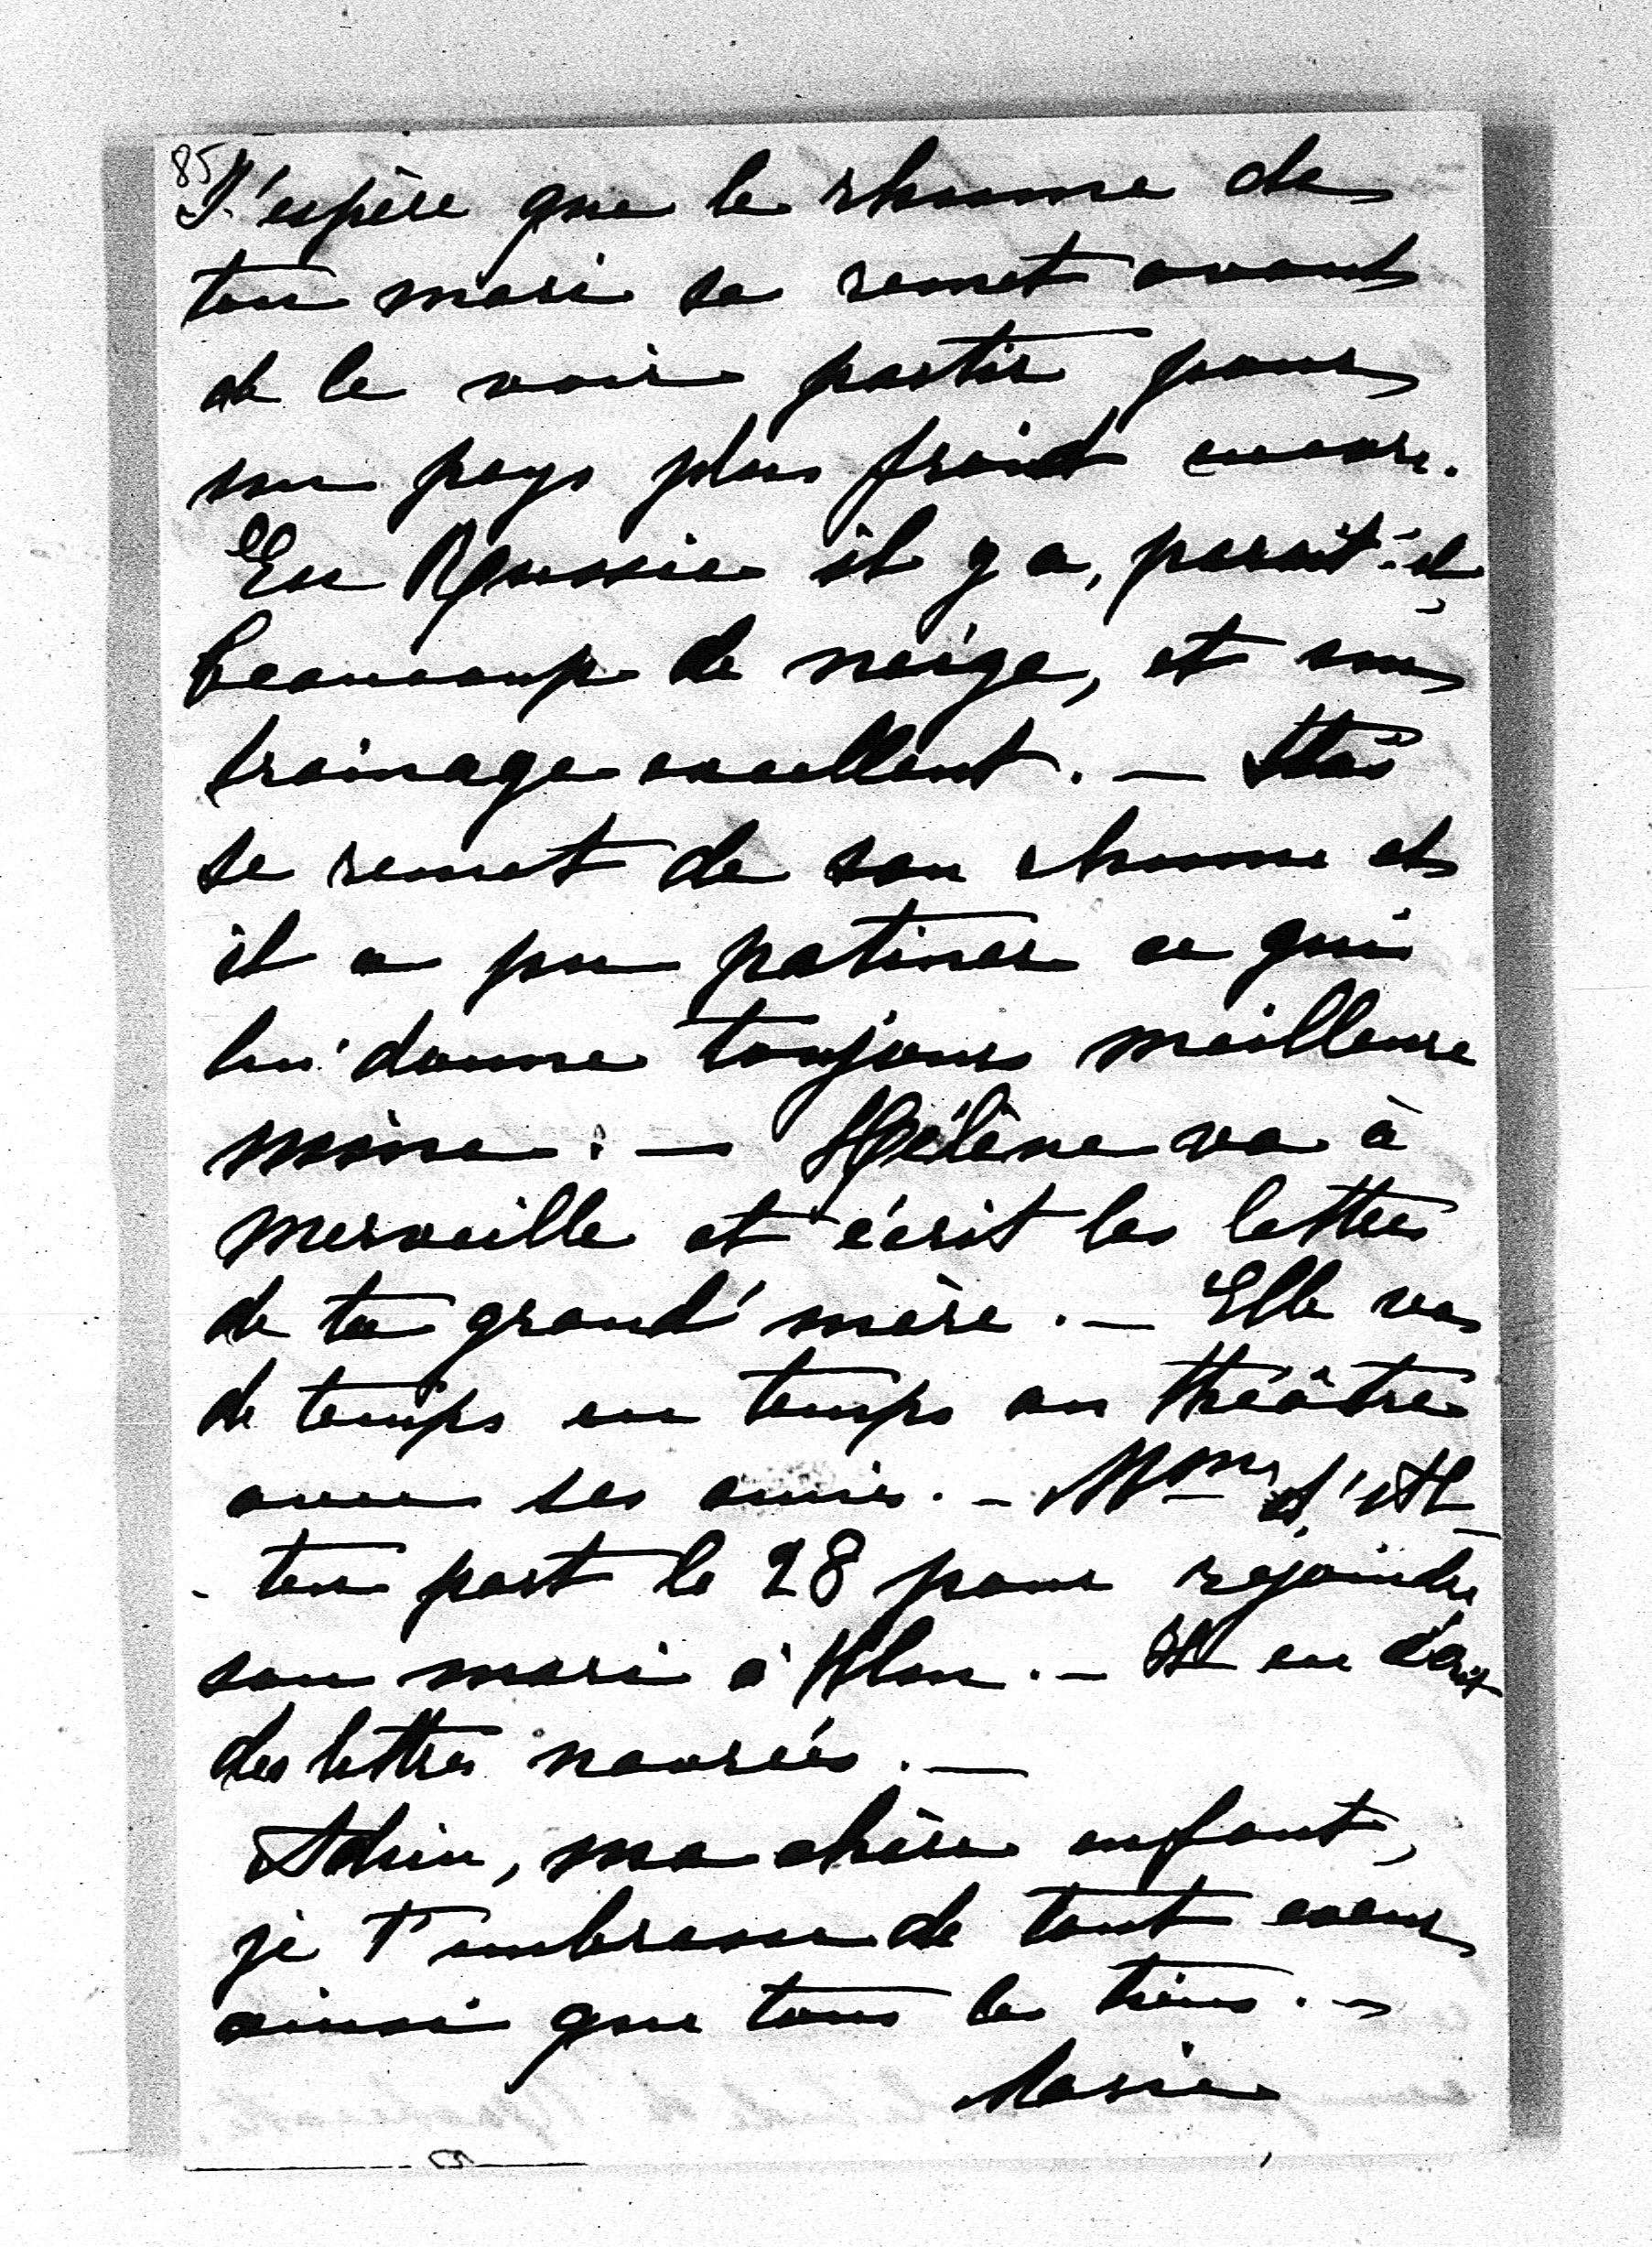 85
J'espère que le rhume de
ton mari se remet avant
de le voir partir pour
un pays plus froid encore.
En Russie il y a, parait-il,
beaucoup de neige, et un
trainage excellent. —
se remet de son rhume et
il a pu patiner ce qui
lui donne toujours meilleure
mine. — Hélène va à
merveille et écrit les lettres
de ta grand'mère. — Elle va
de temps en temps au théâtre
avec ses amies. — Mme
part le 28 pour rejoindre
son mari à — Il en écrit
des lettres navrées. —
Adieu, ma chère enfant,
je t'embrasse de tout coeur
ainsi que tous les tiens. —
Marie